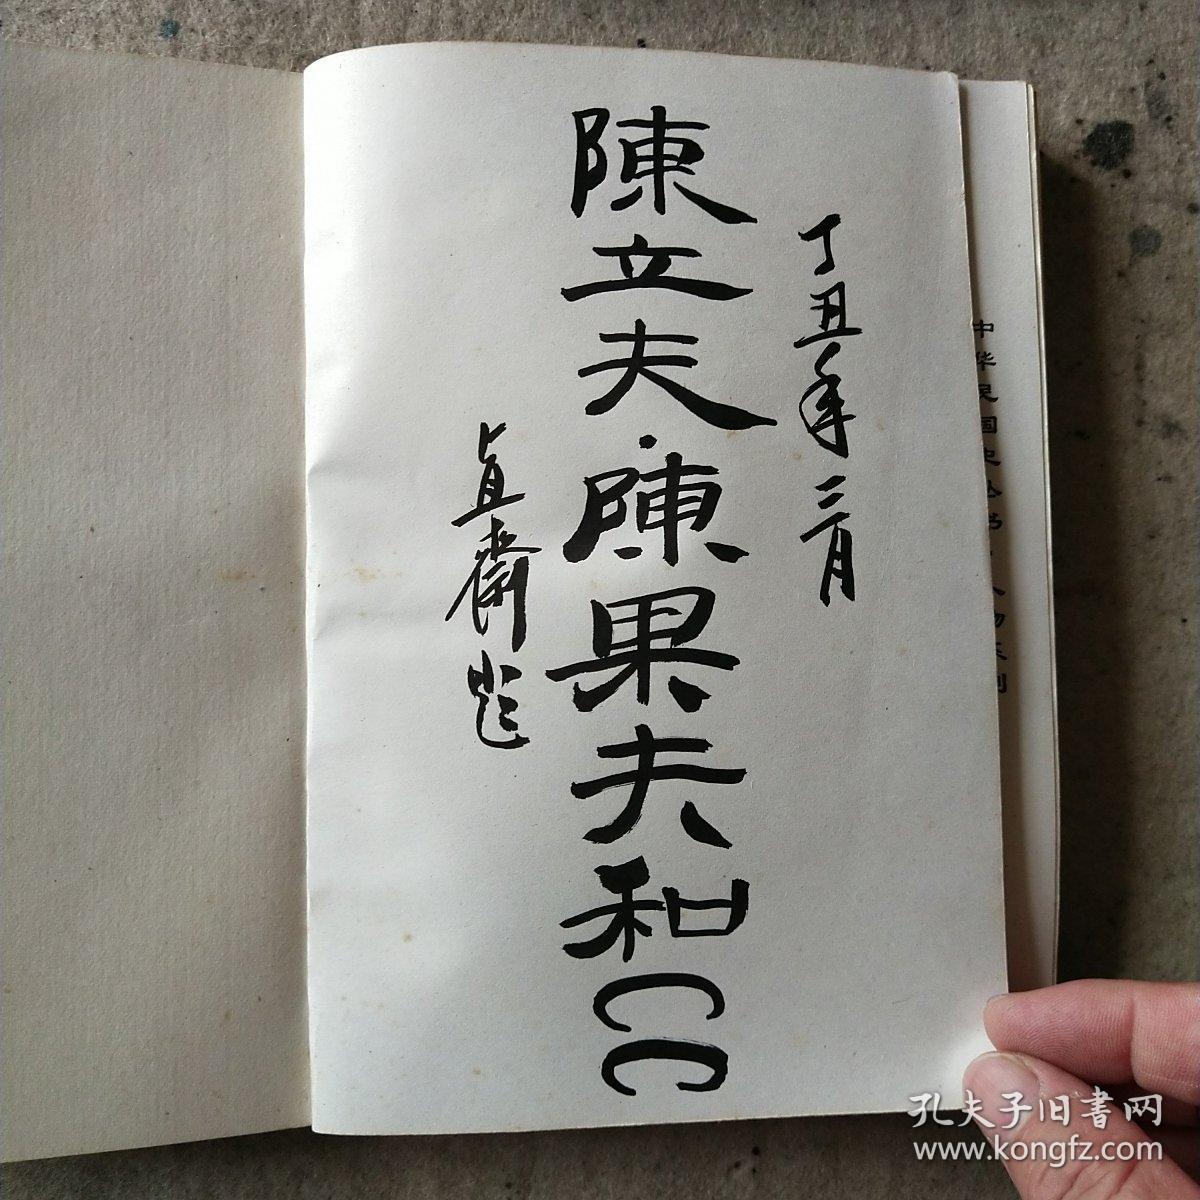 中华民国史丛书·人物系列
丁丑年三月
陳立夫·陳果夫和CC
貞齋題
孔夫子旧書网
www.kongfz.com